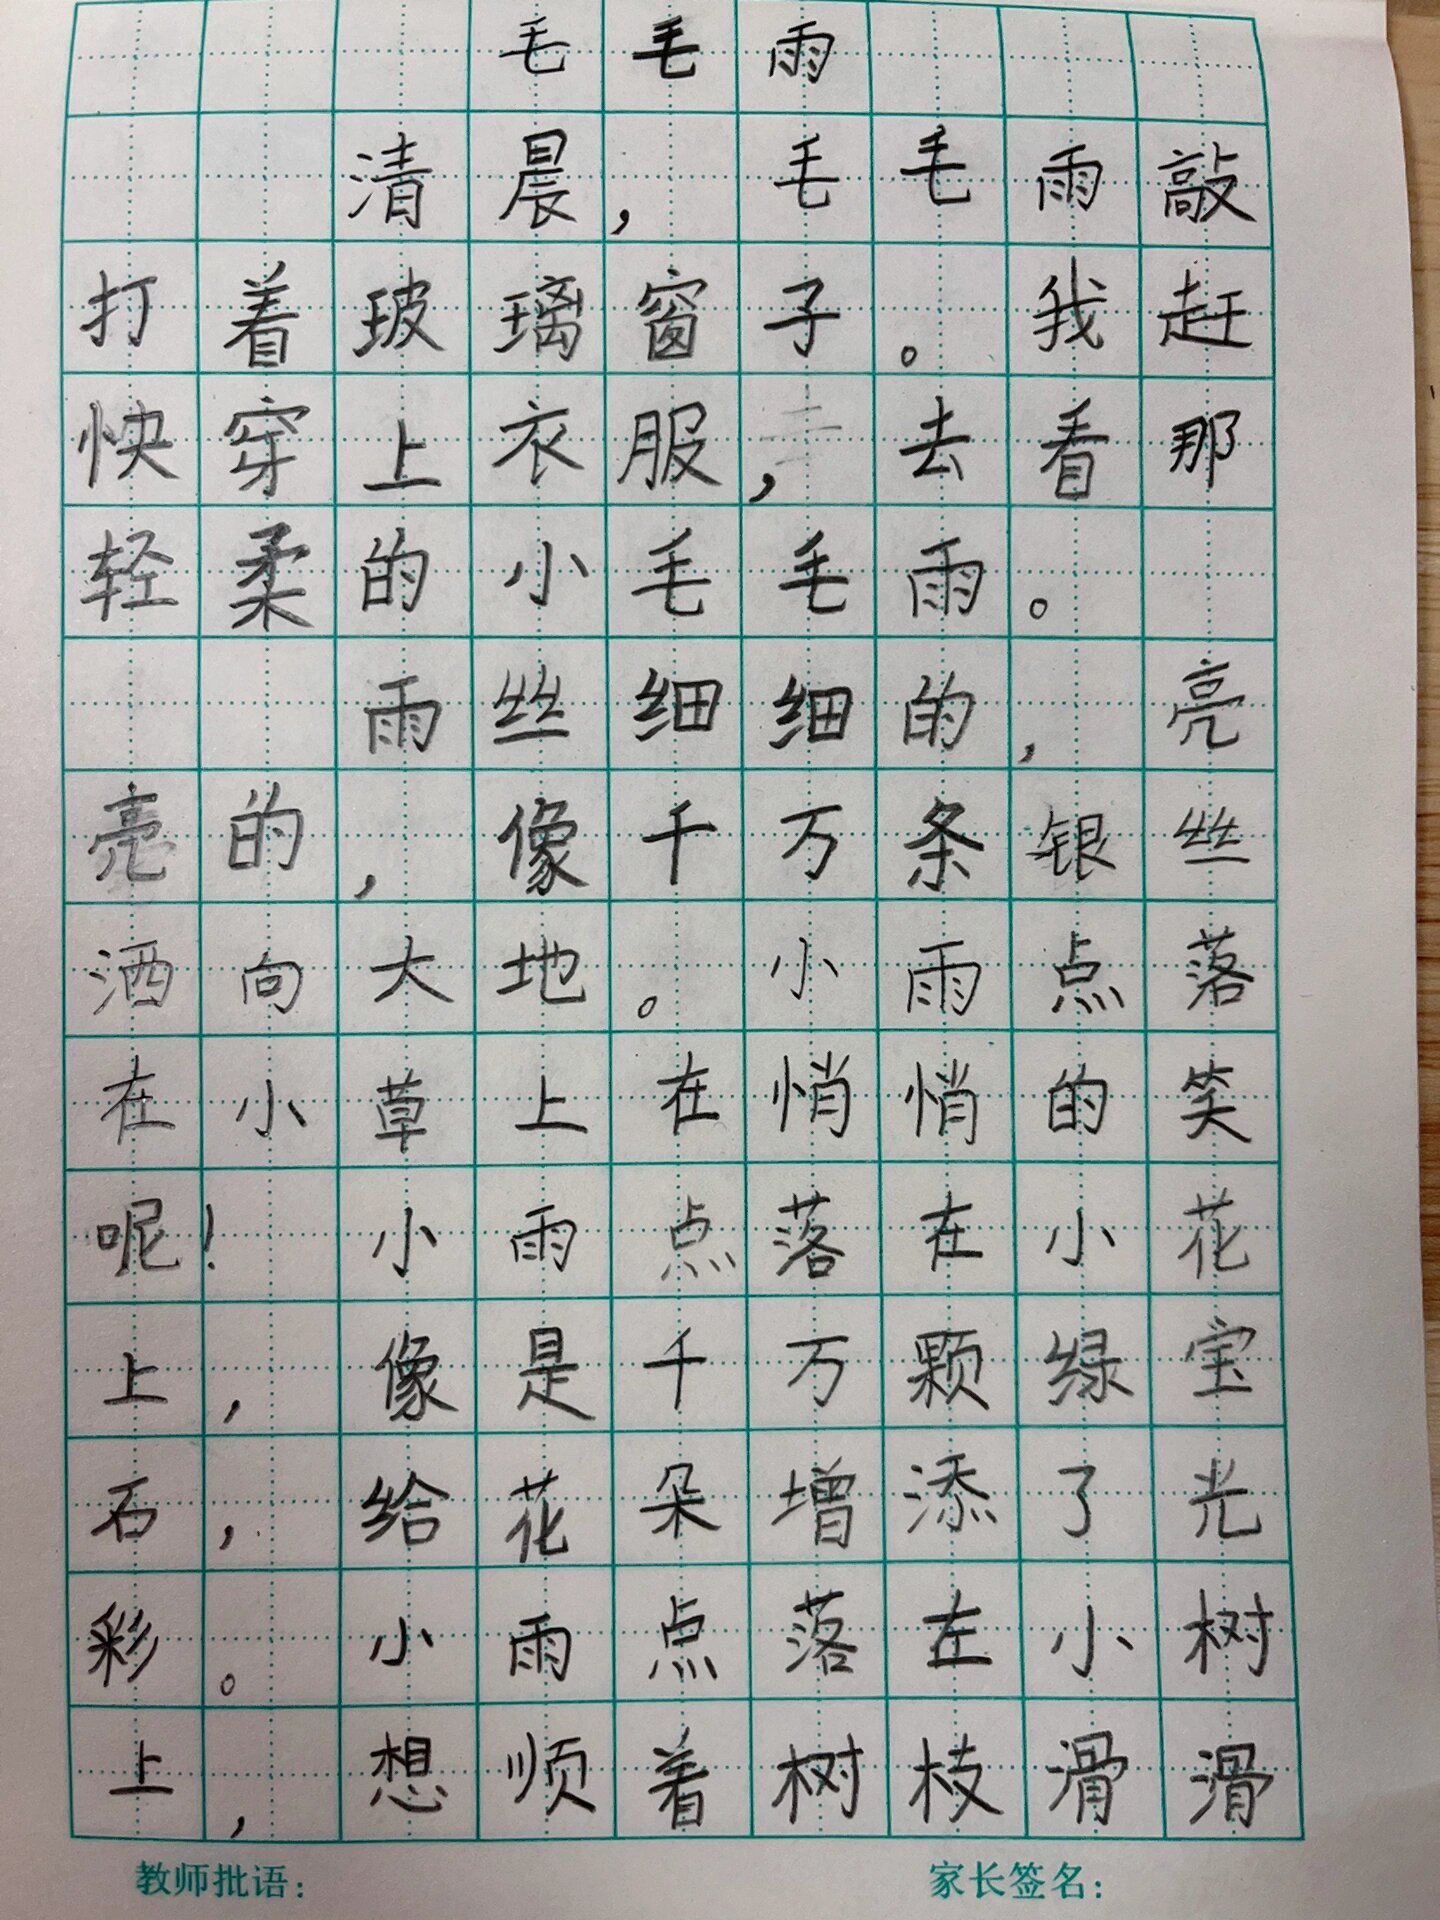 毛毛雨
清晨，毛毛雨敲
打着玻璃窗子。我赶
快穿上衣服，去看那
轻柔的小毛毛雨。
雨丝细细的，亮
亮的，像千万条银丝
洒向大地。小雨点落
在小草上在悄悄的笑
呢！小雨点落在小花
上，像是千万颗绿宝
石，给花朵增添了光
彩。小雨点落在小树
上，想顺着树枝滑滑
教师批语：
家长签名：